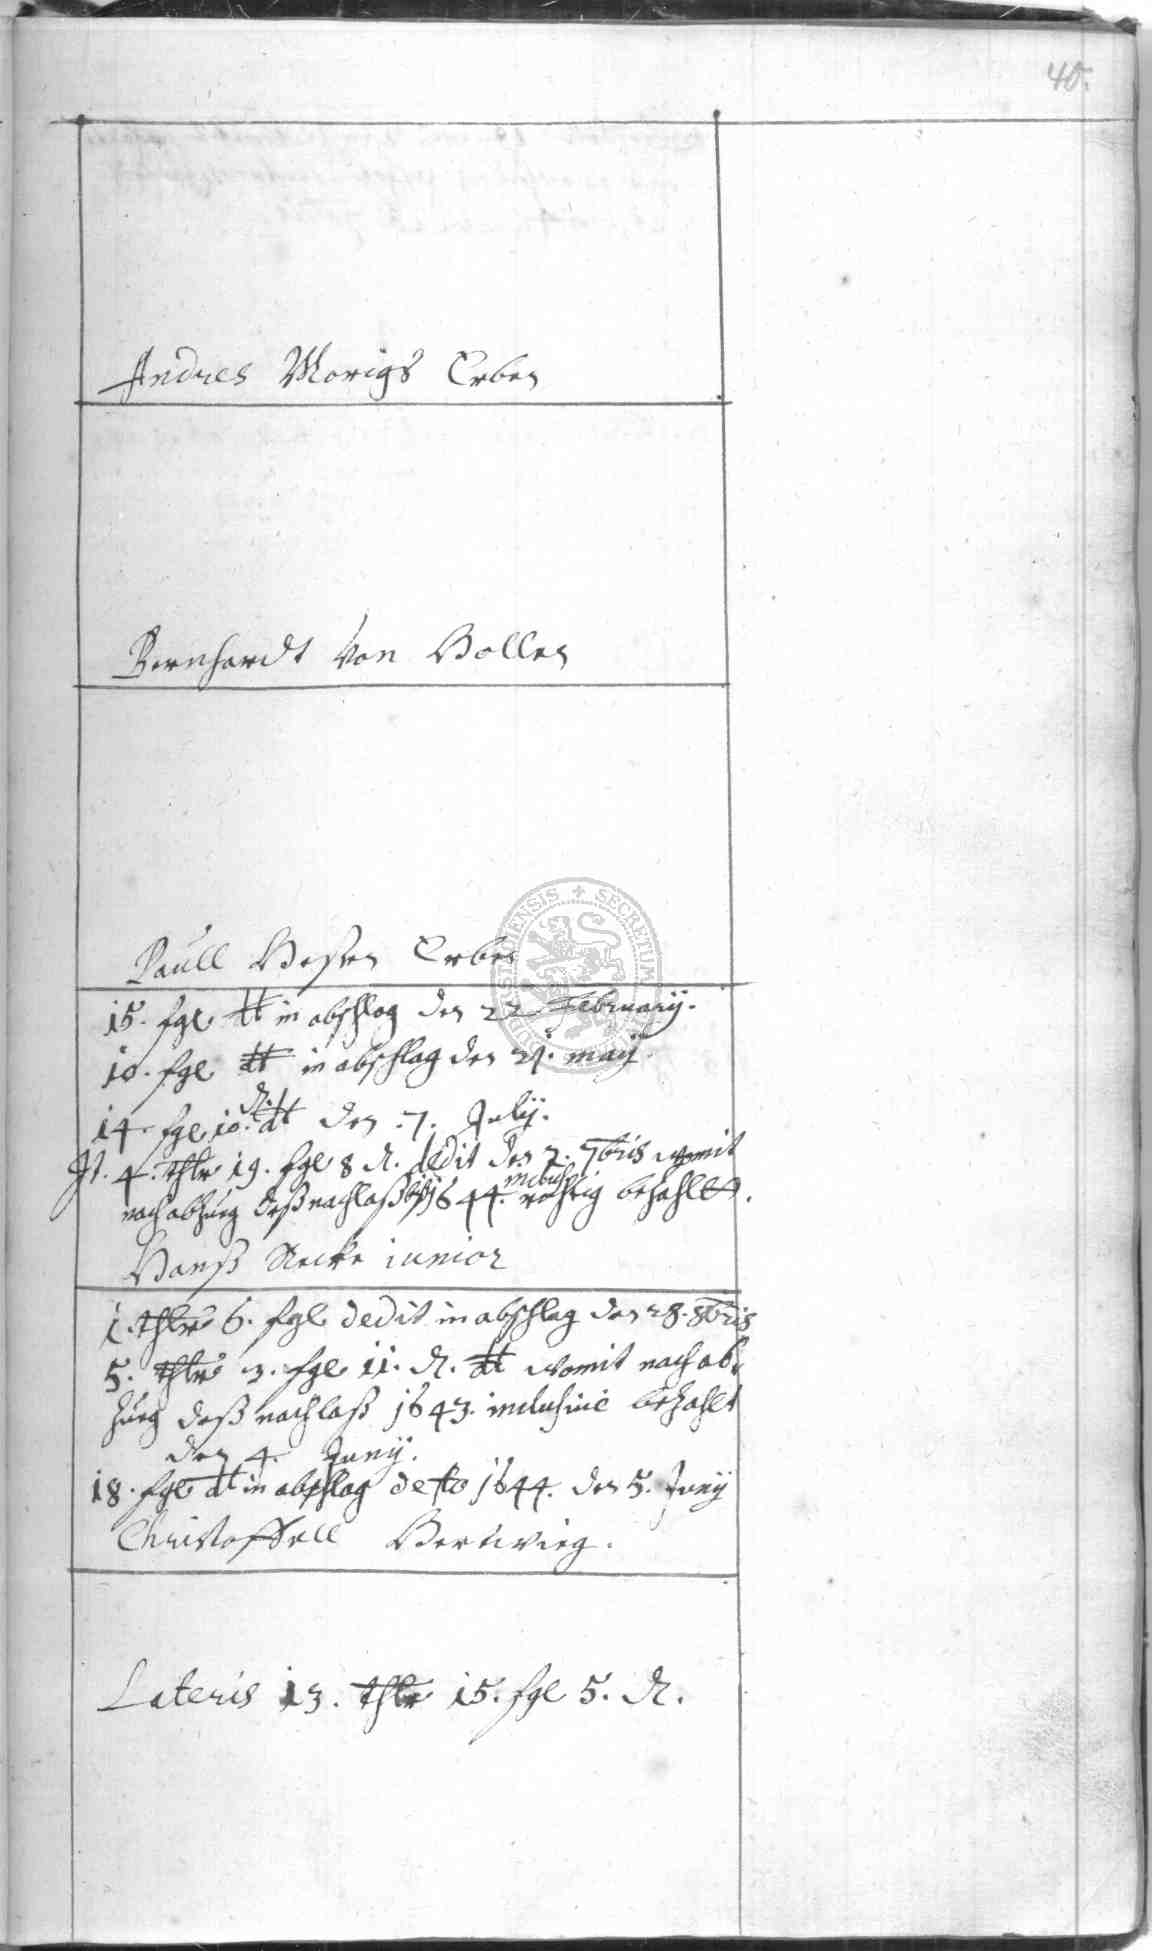 40.
Andres Morigs Erben
Bernhardt Von Bollen
Paull Heßen Erben
15. sgl dt in abschlag den 22 February.
10. sgl dt in abschlag den 21. maÿ.
14. sgl 10. ₰. dt den .7. Julÿ.
It. 4. thlr 19. sgl 8 ₰. dedit den 7. 7bris womit
nach abzug deß nachlaß biß 1644. inclusive richtig bezahlt.
Hanß Recke iunior
1. thlr 6. sgl dedit in abschlag den 28. 8bris
5. thlr 3. sgl 11. ₰. dt womit nach ab-
zug deß nachlaß 1643. inclusive bezahlt
den 4. Junÿ.
18. sgl dt in abschlag de Ao 1644. den 5. Junÿ
Christoffell Hertwieg.
Lateris 13. thlr 15. sgl 5. ₰.
SECRETUM